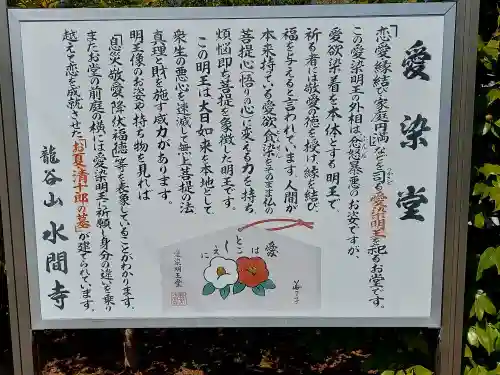 愛染堂
「恋愛縁結び、家庭円満」などを司る愛染明王を祀るお堂です。
この愛染明王の外相は忿怒暴悪のお姿ですが、
愛欲染着を本体とする明王で
祈る者には敬愛の徳を授け、縁を結び、
福を与えると言われています。人間が
本来持っている愛欲貪染をそのまま仏の
菩提心(悟りの心)に変える力を持ち、
煩悩即ち菩提を象徴した明王です。
この明王は大日如来を本地として
衆生の悪心を速滅して無上菩提の法
真理と財を施す威力があります。
明王像のお姿や持ち物を見れば
「息災・敬愛・降伏・福徳」等を表象していることがわかります。
またお堂の前庭の横には愛染明王に祈願し身分の違いを乗り
越えて恋を成就させた「お夏・清十郎の墓」が建てられています。
龍谷山 水間寺
愛
はことしに
愛染明王堂